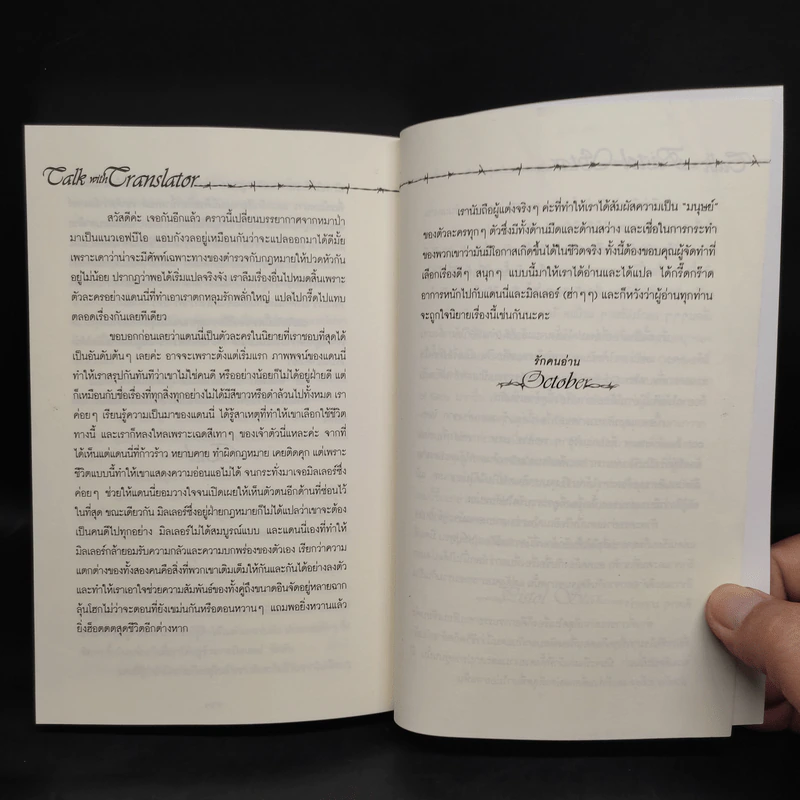 Talk with Translator
สวัสดีค่ะ เจอกันอีกแล้ว คราวนี้เปลี่ยนบรรยากาศจากหมาป่า
มาเป็นแนวเอฟบีไอ แอบกังวลอยู่เหมือนกันว่าจะแปลออกมาได้ดีมั้ย
เพราะเดาว่าน่าจะมีศัพท์เฉพาะทางของตำรวจกับกฎหมายให้ปวดหัวกัน
อยู่ไม่น้อย ปรากฏว่าพอได้เริ่มแปลจริงจัง เราลืมเรื่องอื่นไปหมดสิ้นเพราะ
ตัวละครอย่างแดนนี่ที่ทำเอาเราตกหลุมรักพลั่กใหญ่ แปลไปกรี๊ดไปแทบ
ตลอดเรื่องกันเลยทีเดียว
ขอบอกก่อนเลยว่าแดนนี่เป็นตัวละครในนิยายที่เราชอบที่สุดได้
เป็นอันดับต้นๆ เลยค่ะ อาจจะเพราะตั้งแต่เริ่มแรก ภาพพจน์ของแดนนี่
ทำให้เราสรุปกันทันทีว่าเขาไม่ใช่คนดี หรืออย่างน้อยก็ไม่ได้อยู่ฝ่ายดี แต่
ก็เหมือนกับชื่อเรื่องที่ทุกสิ่งทุกอย่างไม่ได้มีสีขาวหรือดำล้วนไปทั้งหมด เรา
ค่อยๆ เรียนรู้ความเป็นมาของแดนนี่ ได้รู้สาเหตุที่ทำให้เขาเลือกใช้ชีวิต
ทางนี้ และเราก็หลงใหลเพราะเฉดสีเทาๆ ของเจ้าตัวนี่แหละค่ะ จากที่
ได้เห็นแต่แดนนี่ที่ก้าวร้าว หยาบคาย ทำผิดกฎหมาย เคยติดคุก แต่เพราะ
ชีวิตแบบนี้ทำให้เขาแสดงความอ่อนแอไม่ได้ จนกระทั่งมาเจอมิลเลอร์ซึ่ง
ค่อยๆ ช่วยให้แดนนี่ยอมวางใจจนเปิดเผยให้เห็นตัวตนอีกด้านที่ซ่อนไว้
ในที่สุด ขณะเดียวกัน มิลเลอร์ซึ่งอยู่ฝ่ายกฎหมายก็ไม่ได้แปลว่าเขาจะต้อง
เป็นคนดีไปทุกอย่าง มิลเลอร์ไม่ได้สมบูรณ์แบบ และแดนนี่เองที่ทำให้
มิลเลอร์กล้ายอมรับความกลัวและความบกพร่องของตัวเอง เรียกว่าความ
แตกต่างของทั้งสองคนคือสิ่งที่พวกเขาเติมเต็มให้กันและกันได้อย่างลงตัว
และทำให้เราเอาใจช่วยความสัมพันธ์ของทั้งคู่ถึงขนาดอินจัดอยู่หลายฉาก
ลุ้นโฮกไม่ว่าจะตอนที่ยังเขม่นกันหรือตอนหวานๆ แถมพอยิ่งหวานแล้ว
ยิ่งฮ็อตตตสุดชีวิตอีกต่างหาก
เรานับถือผู้แต่งจริงๆ ค่ะที่ทำให้เราได้สัมผัสความเป็น “มนุษย์”
ของตัวละครทุกๆ ตัวซึ่งมีทั้งด้านมืดและด้านสว่าง และเชื่อในการกระทำ
ของพวกเขาว่ามันมีโอกาสเกิดขึ้นได้ในชีวิตจริง ทั้งนี้ต้องขอบคุณผู้จัดทำที่
เลือกเรื่องดีๆ สนุกๆ แบบนี้มาให้เราได้อ่านและได้แปล ได้กรี๊ดกร๊าด
อาการหนักไปกับแดนนี่และมิลเลอร์ (ฮ่าๆๆ) และก็หวังว่าผู้อ่านทุกท่าน
จะถูกใจนิยายเรื่องนี้เช่นกันนะคะ
รักคนอ่าน
October